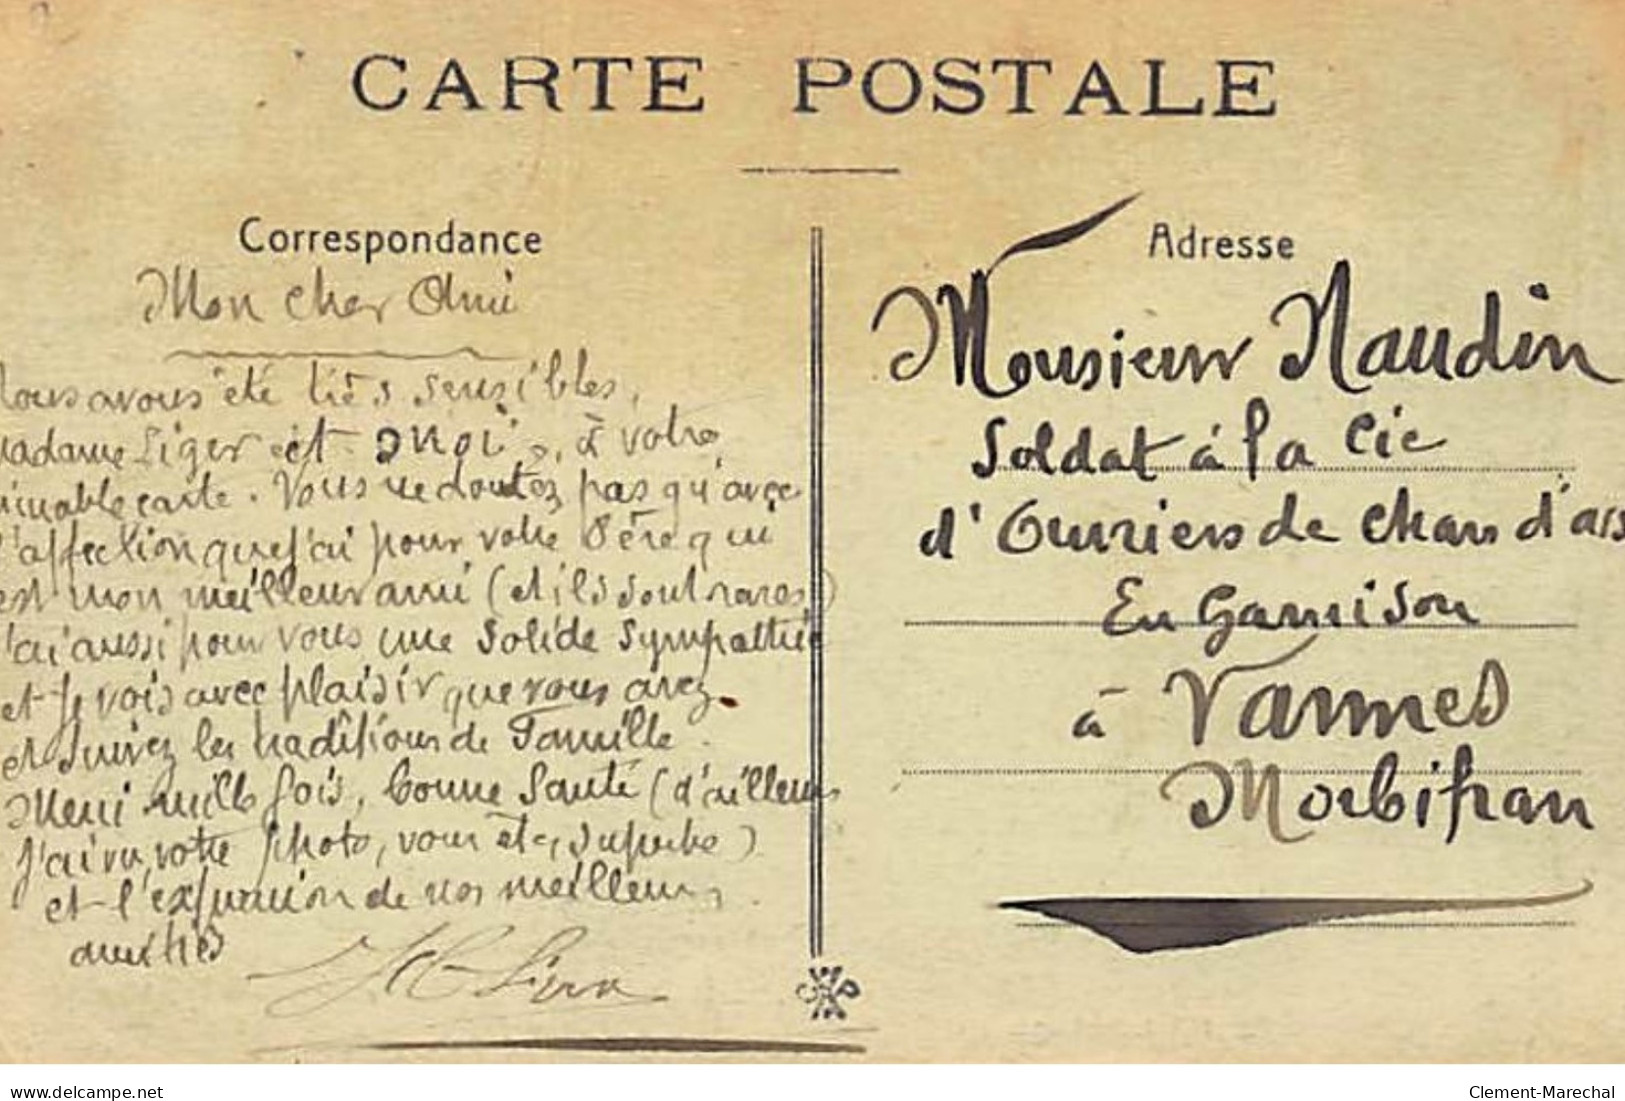 CARTE POSTALE
Correspondance
Mon cher Ami
Nous avons été très sensibles,
Madame Liger et moi, à votre
aimable carte. Vous ne doutez pas qu'avec
l'affection que j'ai pour votre Père qui
est mon meilleur ami (et ils sont rares)
j'ai aussi pour vous une solide sympathie
et je vois avec plaisir que vous avez
et suivez les traditions de Famille.
Merci mille fois, bonne santé (d'ailleurs
j'ai vu votre photo, vous êtes superbe)
et l'expression de nos meilleures
amitiés
Adresse
Monsieur Naudin
Soldat à la Cie
d'Ouvriers de Chars d'ass
En Garnison
à Vannes
Morbihan
delcampe.net
Clement-Marechal